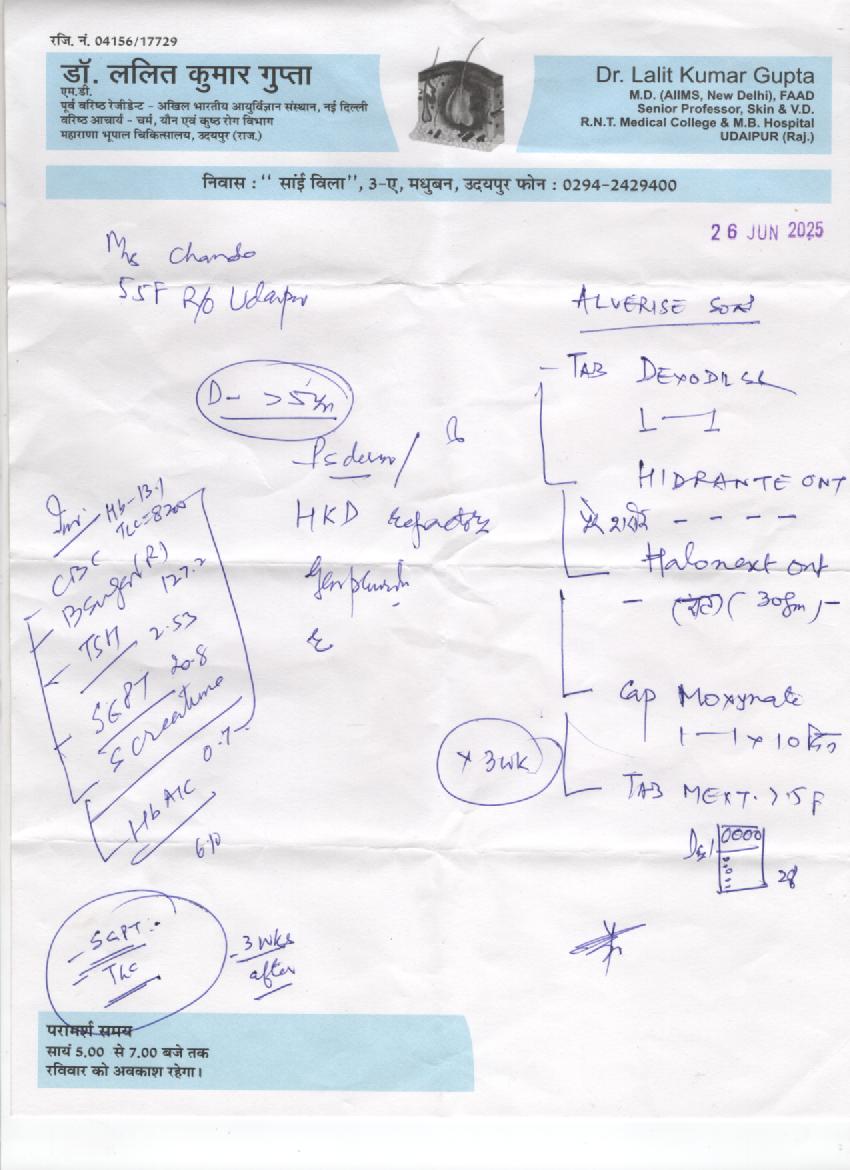 रजि. नं. 04156/17729
डॉ. ललित कुमार गुप्ता
एम.डी.
पूर्व वरिष्ठ रेजीडेन्ट - अखिल भारतीय आयुर्विज्ञान संस्थान, नई दिल्ली
वरिष्ठ आचार्य - चर्म, यौन एवं कुष्ठ रोग विभाग
महाराणा भूपाल चिकित्सालय, उदयपुर (राज.)
Dr. Lalit Kumar Gupta
M.D. (AIIMS, New Delhi), FAAD
Senior Professor, Skin & V.D.
R.N.T. Medical College & M.B. Hospital
UDAIPUR (Raj.)
निवास : '' सांई विला'', ३-ए, मधुबन, उदयपुर फोन : 0294-2429400
26 JUN 2025
Mrs Chando
55F R/o Udaipur
D- > 5 yr
HKD refactory
Inv. Hb-13.1
TLC=8200
CBC
BSugar(R) 127.2
TSH 2.53
SGPT 20.8
S creatinine
0.7
HbA1C
6.10
- SGPT :-
- TLC
- 3 wks
after
ALVERISE
- TAB DEXODIL
1 - 1
HIDRANTE ONT
- - - -
Halonext ont
- (30gm) -
Cap Moxynate
1 - 1 x 10 दिन
x 3 wk
TAB MEXT 7.5
28
परामर्श समय
सायं 5.00 से 7.00 बजे तक
रविवार को अवकाश रहेगा।